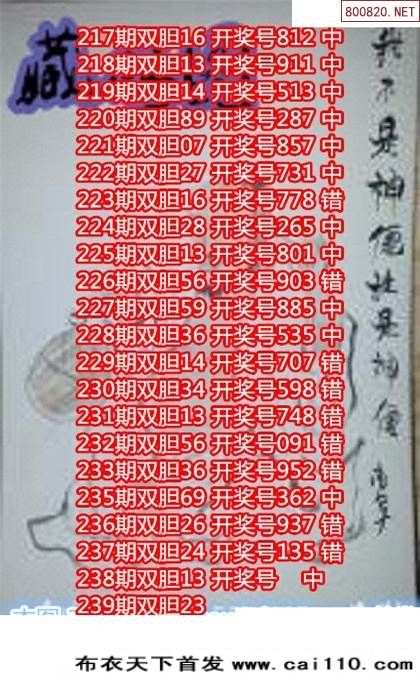 800820.NET
217期双胆16 开奖号812 中
218期双胆13 开奖号911 中
219期双胆14 开奖号513 中
220期双胆89 开奖号287 中
221期双胆07 开奖号857 中
222期双胆27 开奖号731 中
223期双胆16 开奖号778 错
224期双胆28 开奖号265 中
225期双胆13 开奖号801 中
226期双胆56 开奖号903 错
227期双胆59 开奖号885 中
228期双胆36 开奖号535 中
229期双胆14 开奖号707 错
230期双胆34 开奖号598 错
231期双胆13 开奖号748 错
232期双胆56 开奖号091 错
233期双胆36 开奖号952 错
235期双胆69 开奖号362 中
236期双胆26 开奖号937 错
237期双胆24 开奖号135 错
238期双胆13 开奖号 中
239期双胆23
藏
我不是神便社是神便
布衣天下首发 www.cai110.com